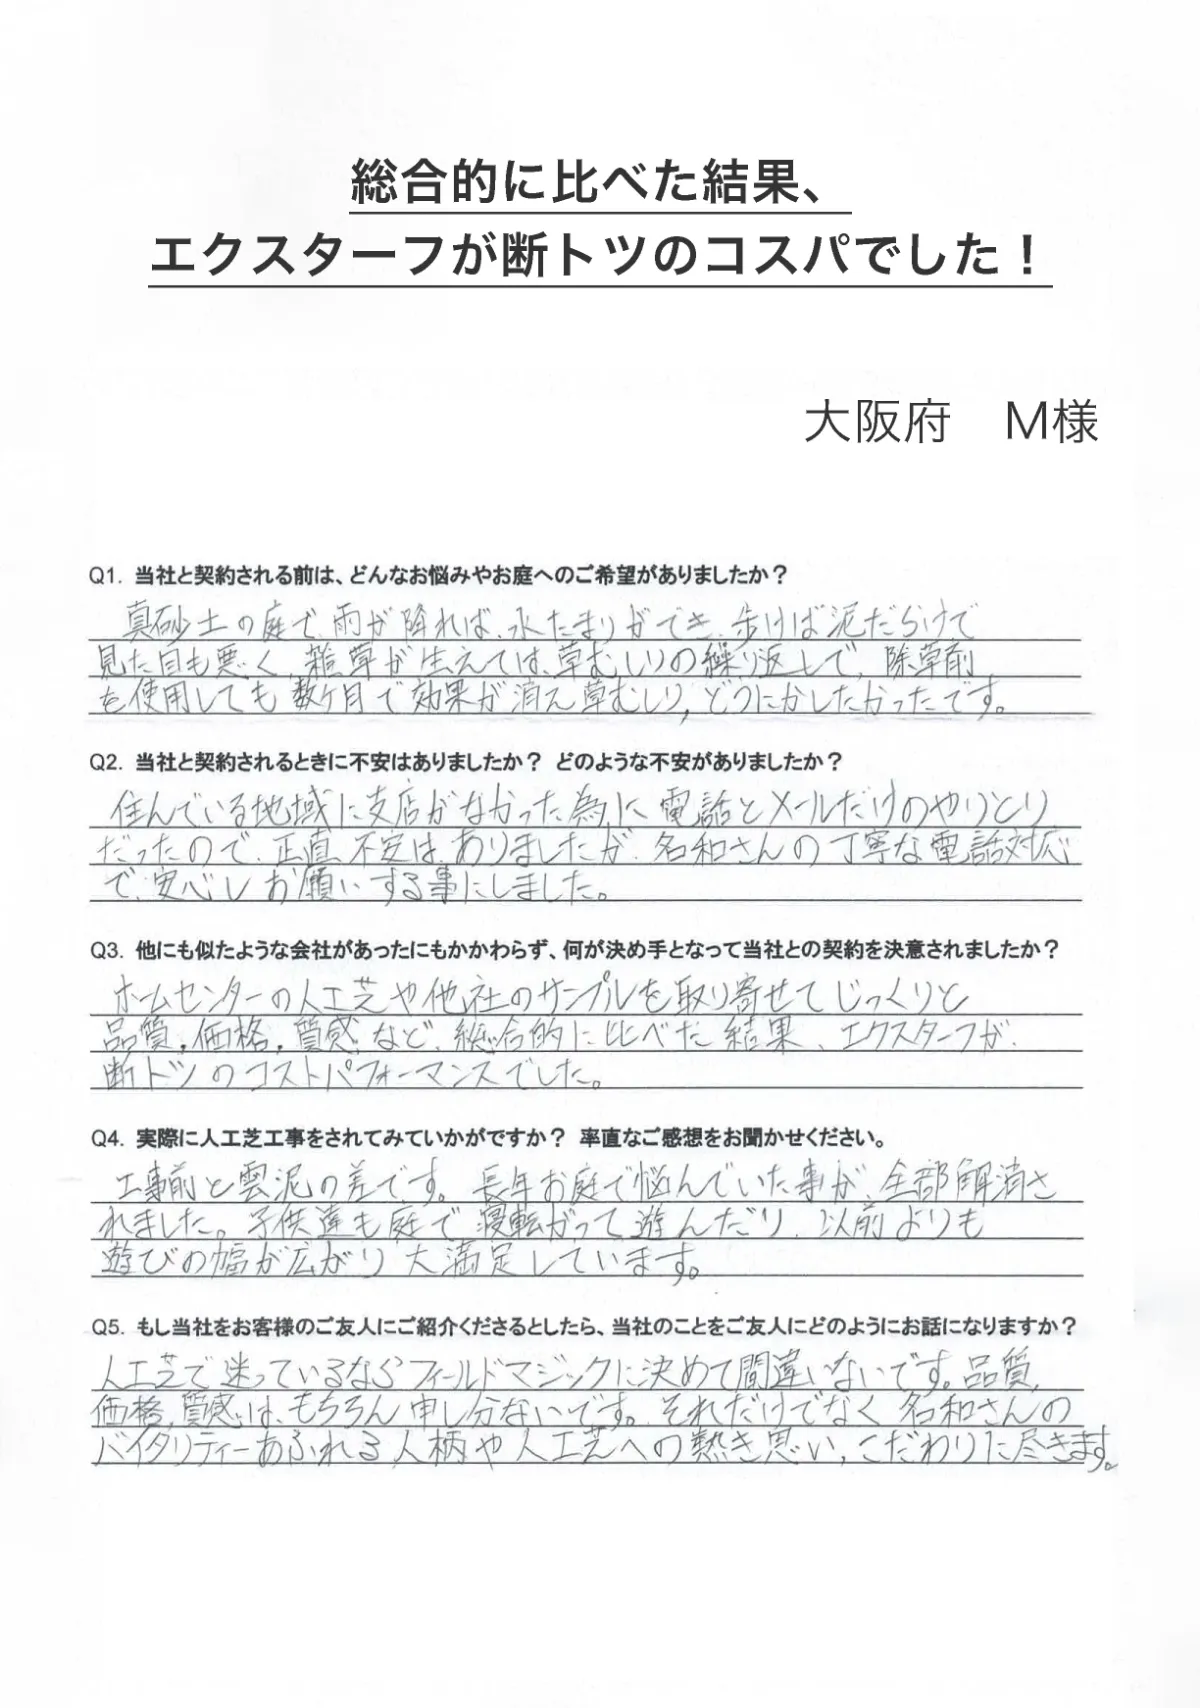 総合的に比べた結果、
エクスターフが断トツのコスパでした！
大阪府　M様
Q1. 当社と契約される前は、どんなお悩みやお庭へのご希望がありましたか？
真砂土の庭で、雨が降れば、水たまりができ、歩けば泥だらけで
見た目も悪く、雑草が生えては、草むしりの繰り返しで、除草剤
を使用しても数ヶ月で効果が消え草むしり, どうにかしたかったです。
Q2. 当社と契約されるときに不安はありましたか？ どのような不安がありましたか？
住んでいる地域に支店がなかった為に、電話とメールだけのやりとり
だったので、正直、不安は、ありましたが、名和さんの丁寧な電話対応
で、安心しお願いする事にしました。
Q3. 他にも似たような会社があったにもかかわらず、何が決め手となって当社との契約を決意されましたか？
ホームセンターの人工芝や他社のサンプルを取り寄せてじっくりと
品質, 価格, 質感など、総合的に比べた結果、エクスターフが、
断トツのコストパフォーマンスでした。
Q4. 実際に人工芝工事をされてみていかがですか？ 率直なご感想をお聞かせください。
工事前と雲泥の差です。長年お庭で悩んでいた事が、全部解消さ
れました。子供達も庭で寝転がって遊んだり、以前よりも
遊びの幅が広がり大満足しています。
Q5. もし当社をお客様のご友人にご紹介くださるとしたら、当社のことをご友人にどのようにお話になりますか？
人工芝で迷っているならフィールドマジックに決めて間違いないです。品質,
価格, 質感は、もちろん申し分ないです。それだけでなく名和さんの
バイタリティーあふれる人柄や人工芝への熱き思い, こだわりに尽きます。